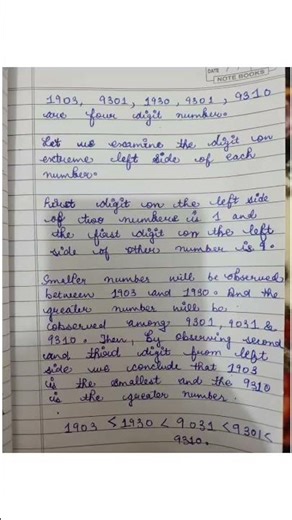 DATE
NOTE BOOKS
1903, 9301, 1930, 9301, 9310
are four digit number.
Let us examine the digit on
extreme left side of each
number.
First digit on the left side
of two numbers is 1 and
the first digit on the left
side of other number is 9.
Smaller number will be observed
between 1903 and 1930. And the
greater number will be
observed among 9301, 9031 &
9310. Then, By observing second
and third digit from left
side we conclude that 1903
is the smallest and the 9310
is the greater number.
1903 < 1930 < 9031 < 9301 <
9310.